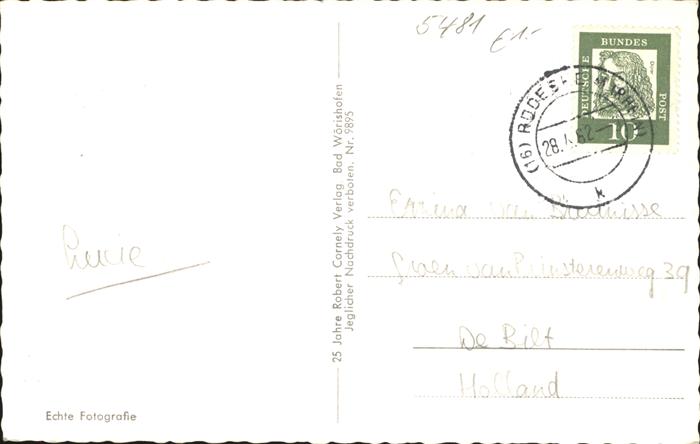 5481
£1.-
DEUTSCHE BUNDES POST
Dürer
10
(16) RÜDESHEIM (RHEIN)
28.4.62
k
25 Jahre Robert Cornely Verlag Bad Wörishofen
Jeglicher Nachdruck verboten. Nr. 9895
van
Groen van Prinstererweg 39
De Bilt
Holland
Lucie
Echte Fotografie